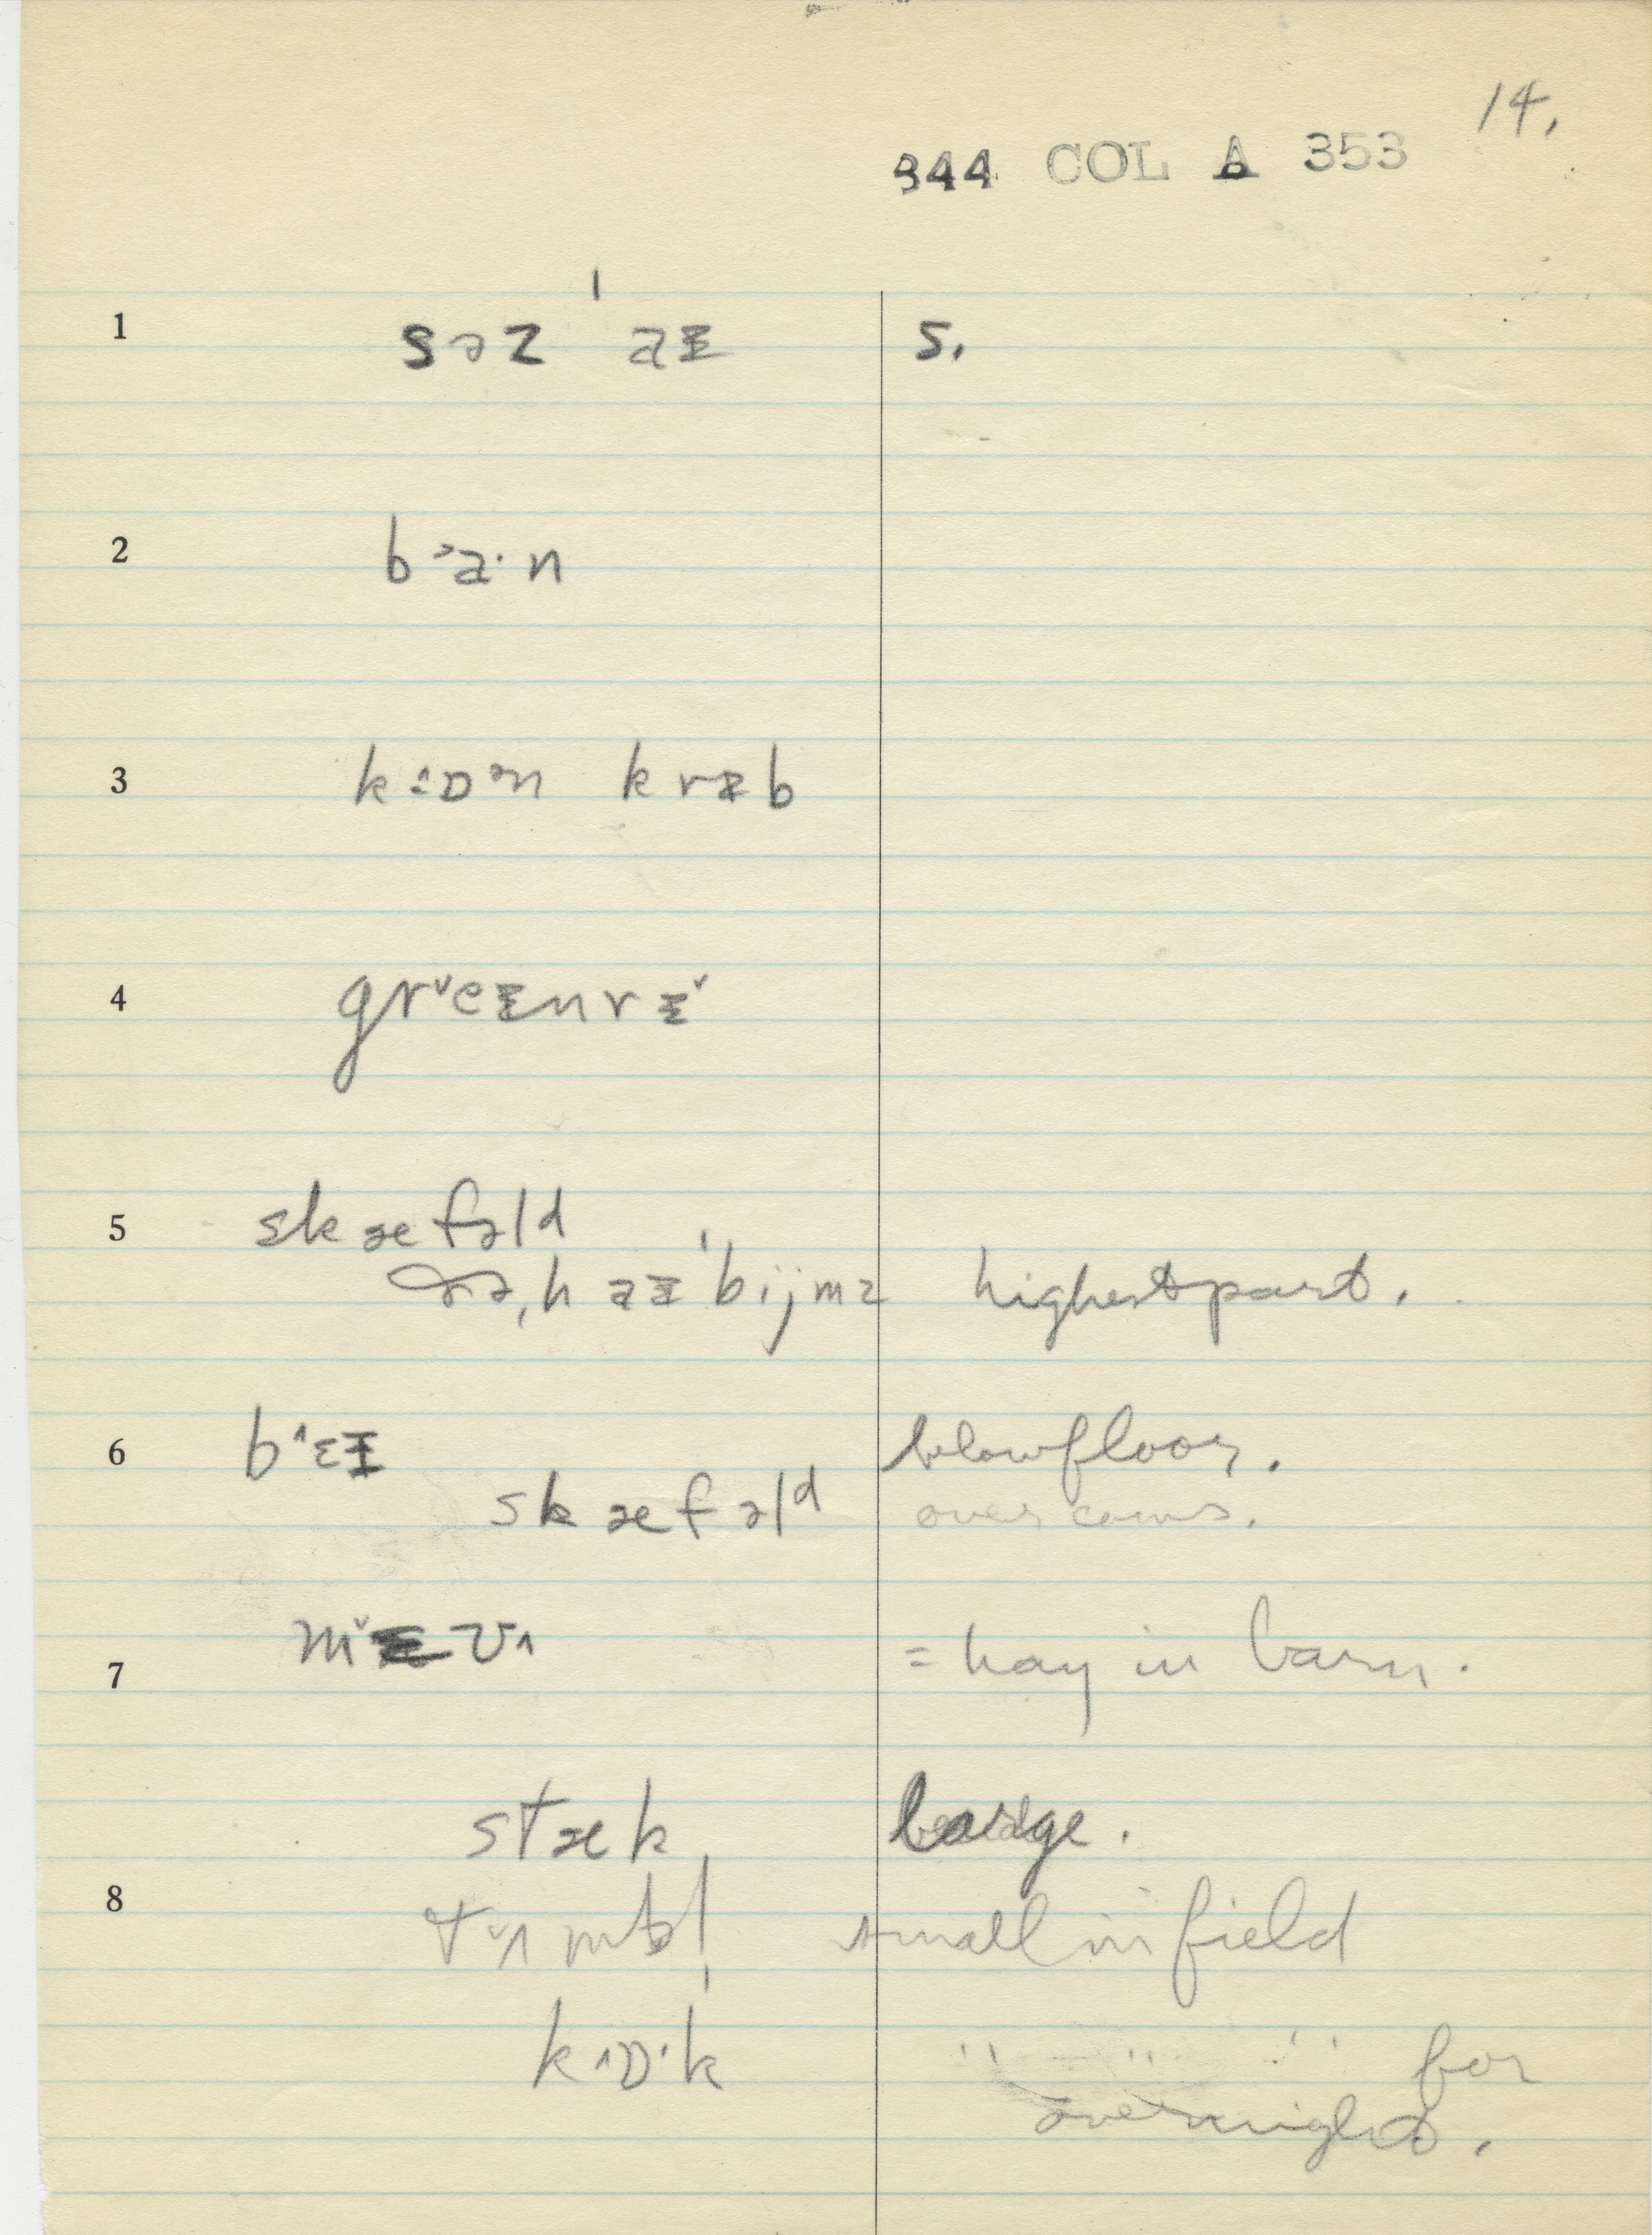 14.
344 COL A 353
1 səz ˈaɪ s.
2 b˃a·n
3 k˔ɒᵊn krɪb
4 grˇeɪnrɪˇ
5 skæfəld
ˌhaɪˈbijmz highest part.
6 b˄ɛɪ below floor.
skæfəld over cows.
7 mˇɪv˄ = hay in barn.
stæk large.
8 small in field
k˄ɒ·k " " " for
overnight.